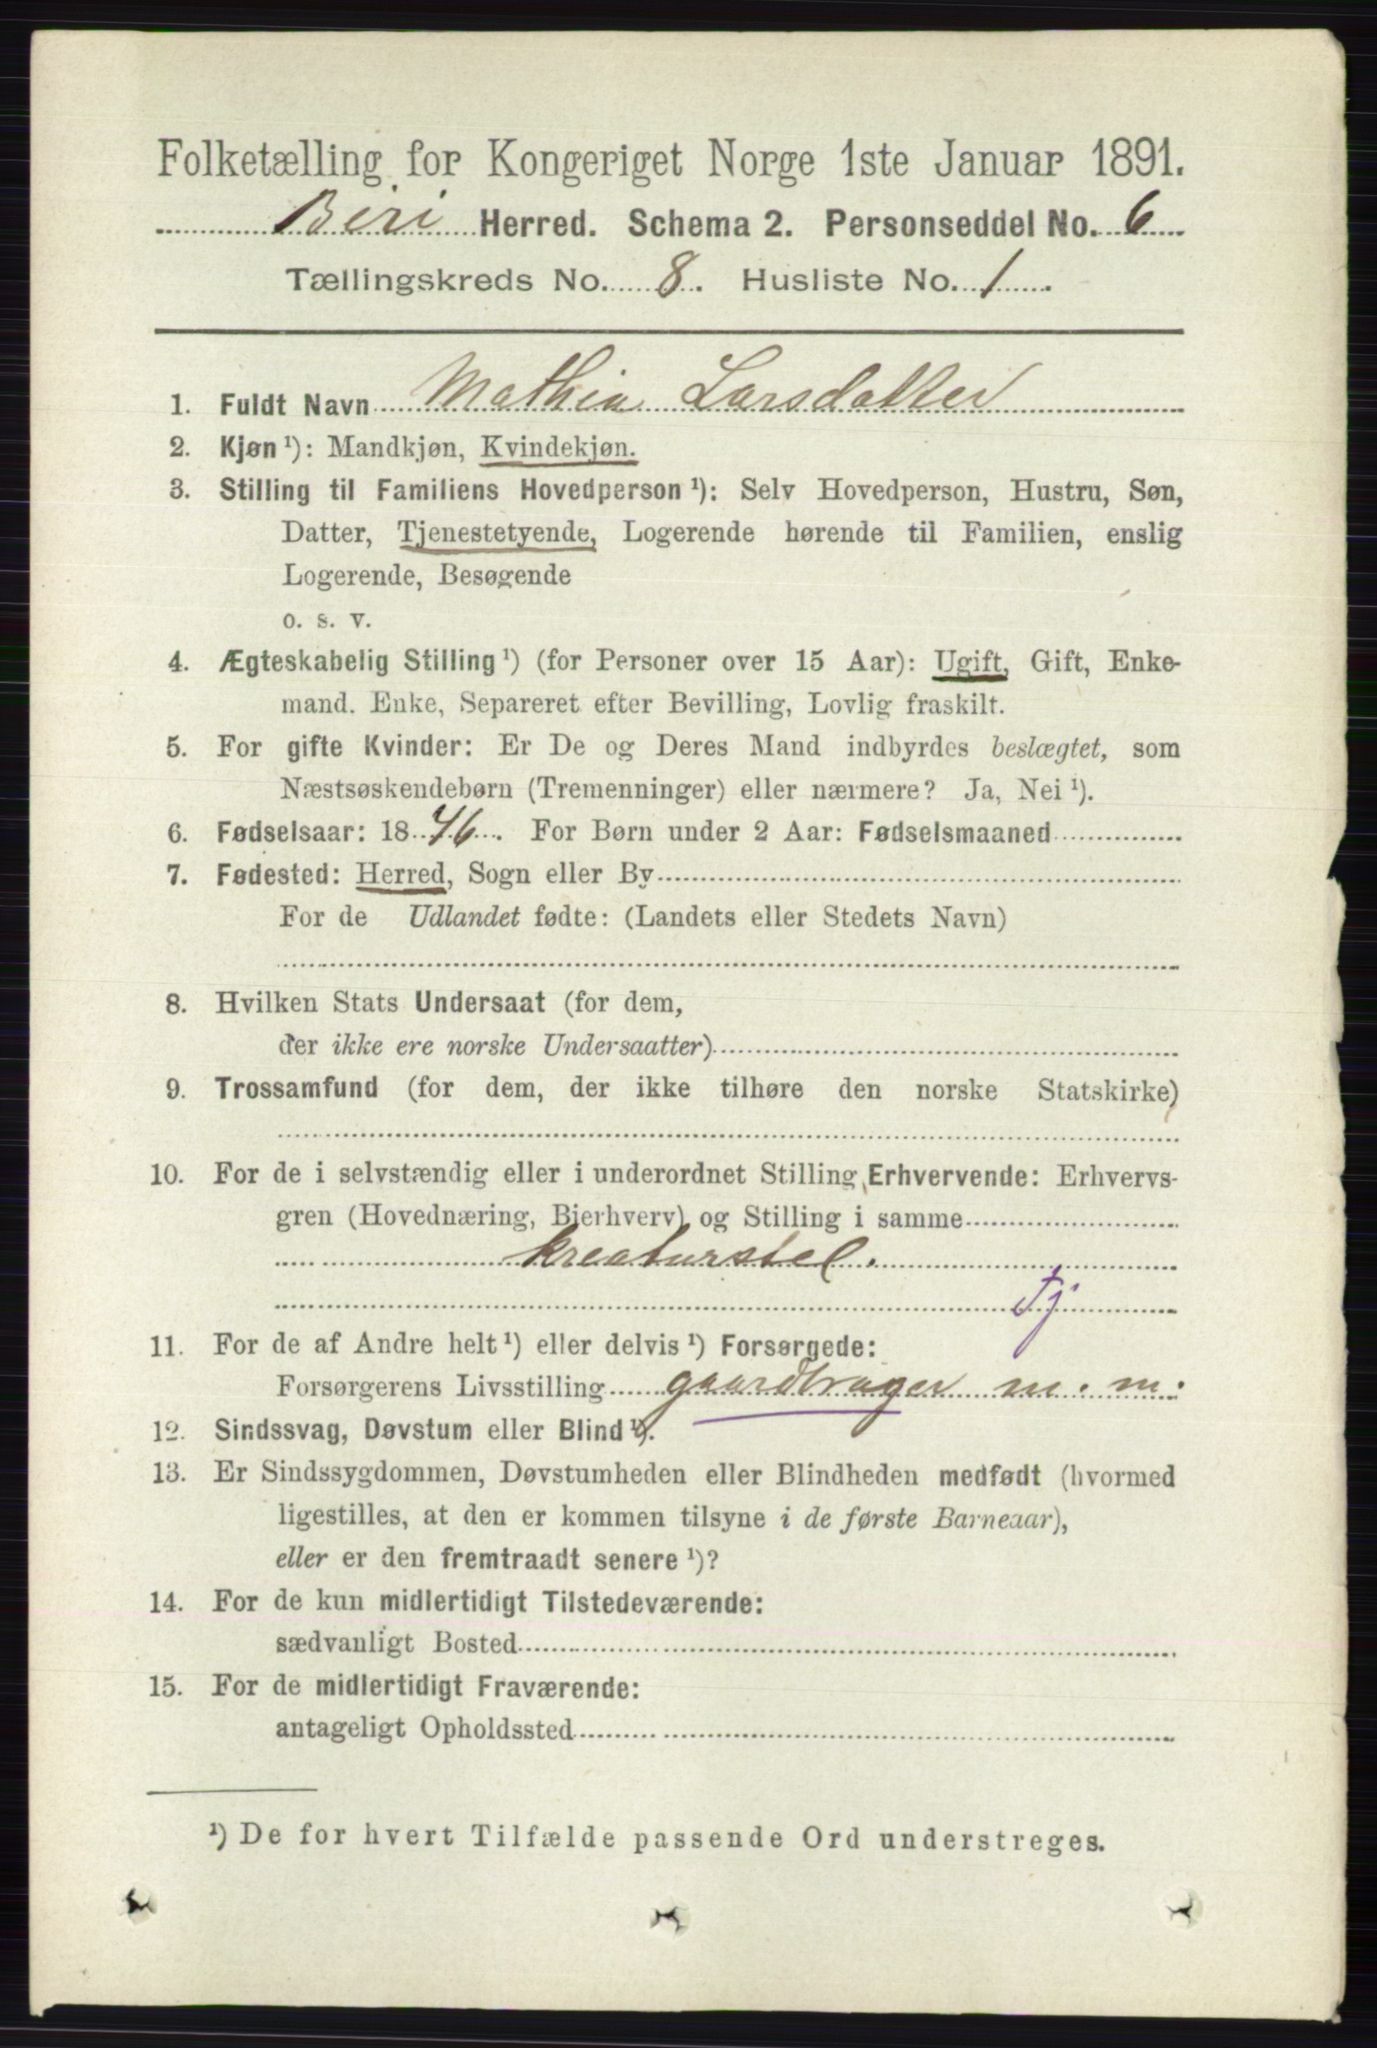 Folketælling for Kongeriget Norge 1ste Januar 1891.
Biri Herred. Schema 2. Personseddel No. 6
Tællingskreds No. 8. Husliste No. 1.
1. Fuldt Navn Mathia Larsdatter
2. Kjøn ¹): Mandkjøn, Kvindekjøn.
3. Stilling til Familiens Hovedperson ¹): Selv Hovedperson, Hustru, Søn,
Datter, Tjenestetyende, Logerende hørende til Familien, enslig
Logerende, Besøgende
o. s. v.
4. Ægteskabelig Stilling ¹) (for Personer over 15 Aar): Ugift, Gift, Enke-
mand. Enke, Separeret efter Bevilling, Lovlig fraskilt.
5. For gifte Kvinder: Er De og Deres Mand indbyrdes beslægtet, som
Næstsøskendebørn (Tremenninger) eller nærmere? Ja, Nei ¹).
6. Fødselsaar: 1846. For Børn under 2 Aar: Fødselsmaaned
7. Fødested: Herred, Sogn eller By
For de Udlandet fødte: (Landets eller Stedets Navn)
8. Hvilken Stats Undersaat (for dem,
der ikke ere norske Undersaatter)
9. Trossamfund (for dem, der ikke tilhøre den norske Statskirke)
10. For de i selvstændig eller i underordnet Stilling Erhvervende: Erhvervs-
gren (Hovednæring, Bierhverv) og Stilling i samme
kreaturstel.
Tj
11. For de af Andre helt ¹) eller delvis ¹) Forsørgede:
Forsørgerens Livsstilling gaardbruger m. m.
12. Sindssvag, Døvstum eller Blind ¹).
13. Er Sindssygdommen, Døvstumheden eller Blindheden medfødt (hvormed
ligestilles, at den er kommen tilsyne i de første Barneaar),
eller er den fremtraadt senere ¹)?
14. For de kun midlertidigt Tilstedeværende:
sædvanligt Bosted
15. For de midlertidigt Fraværende:
antageligt Opholdssted
¹) De for hvert Tilfælde passende Ord understreges.